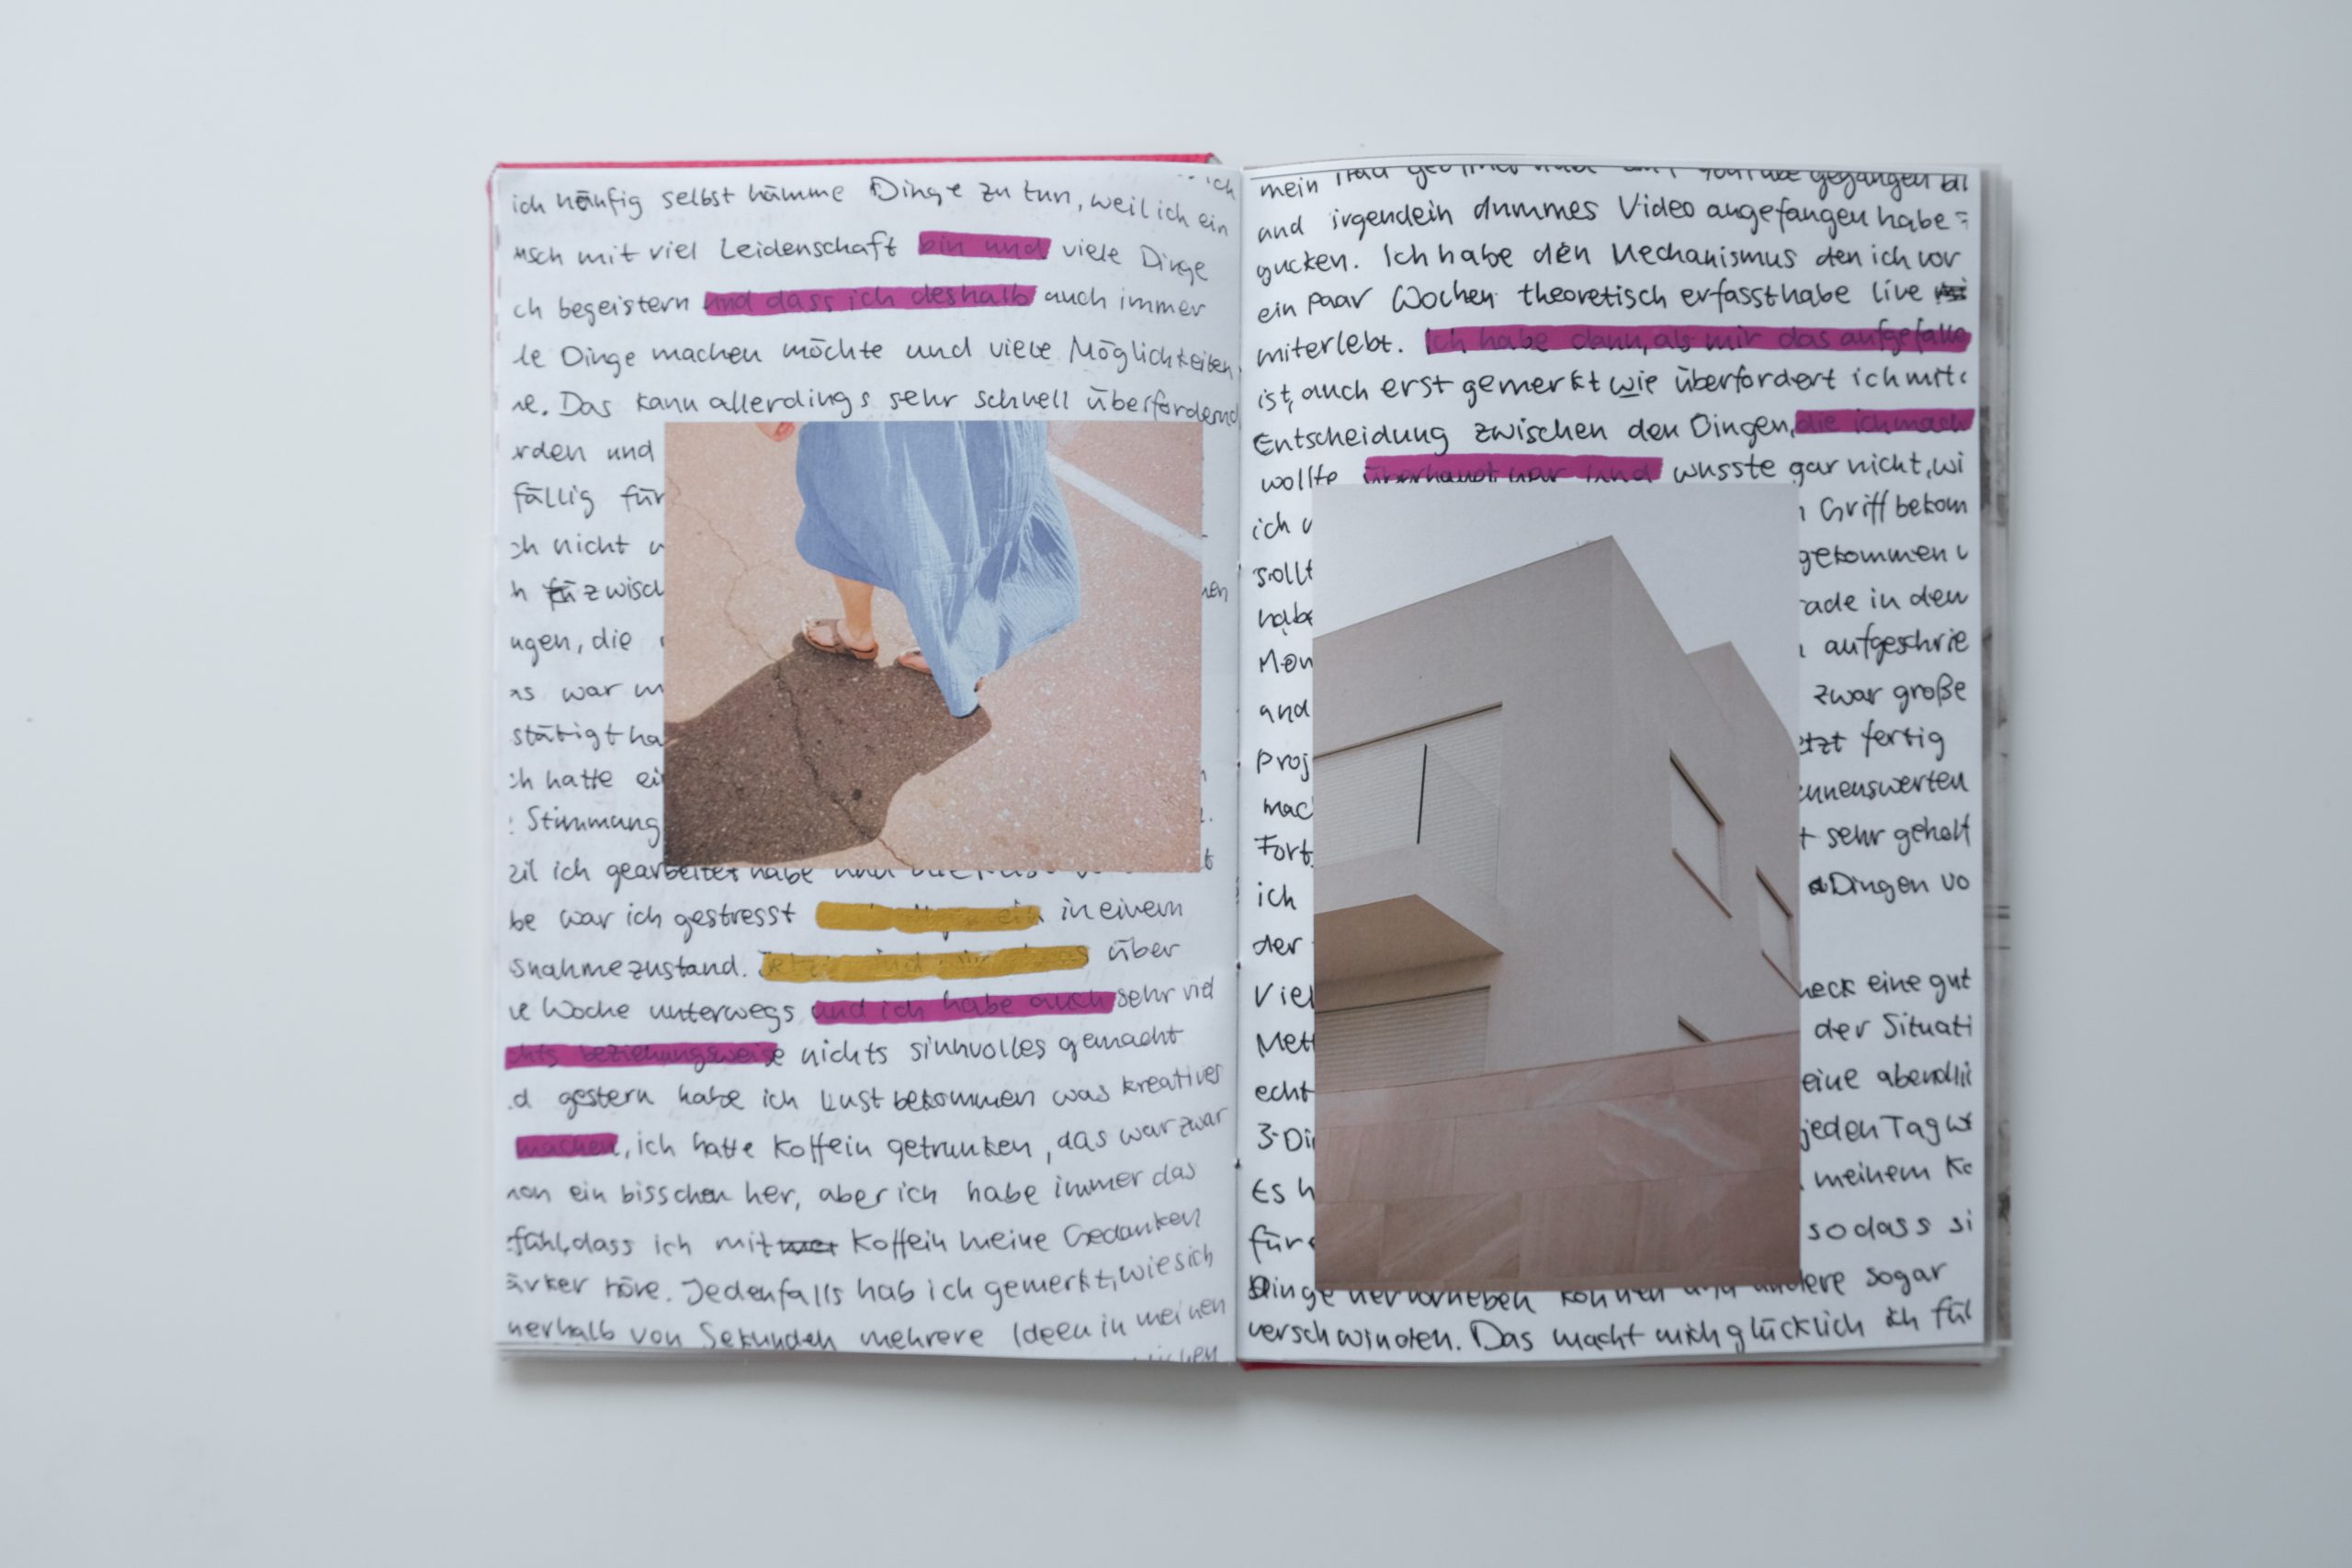 ich
ich häufig selbst hämme Dinge zu tun, weil ich ein
nsch mit viel Leidenschaft bin und viele Dinge
ch begeistern und dass ich deshalb auch immer
le Dinge machen möchte und viele Möglichkeiten
ne. Das kann allerdings sehr schnell überfordernd
rden und
fällig für
ch nicht
h zwisch
ngen, die
as war
stätigt ha
ch hatte ei
Stimmung
eil ich gearbeitet habe und
be war ich gestresst in einem
snahmezustand. über
ve Woche unterwegs und ich habe auch sehr viel
chts beziehungsweise nichts sinnvolles gemacht
d gestern habe ich Lust bekommen was kreatives
machen, ich hatte Koffein getrunken, das war zwar
hon ein bisschen her, aber ich habe immer das
fühl, dass ich mit Koffein meine Gedanken
ärker höre. Jedenfalls hab ich gemerkt, wie sich
nerhalb von Sekunden mehrere Ideen in meinen
mein YouTube gegangen bi
und irgendein dummes Video angefangen habe
gucken. Ich habe den Mechanismus den ich vor
ein paar Wochen theoretisch erfasst habe live
miterlebt. Ich habe dann, als mir das aufgefalle
ist, auch erst gemerkt wie überfordert ich mit
Entscheidung zwischen den Dingen, die ich mach
wollte überhaupt war und wusste gar nicht, wi
ich Griff bekom
sollt gekommen
habe rade in den
Mom aufgeschrie
und zwar große
Proj etzt fertig
mac ennenswerten
Fort sehr geholf
ich Dingen vo
der
Viel heck eine gut
Met der Situati
echt eine abendli
3-Di jeden Tag
Es h meinem
für sodass si
Dinge hervorheben können und andere sogar
verschwinden. Das macht mich glücklich ich fül